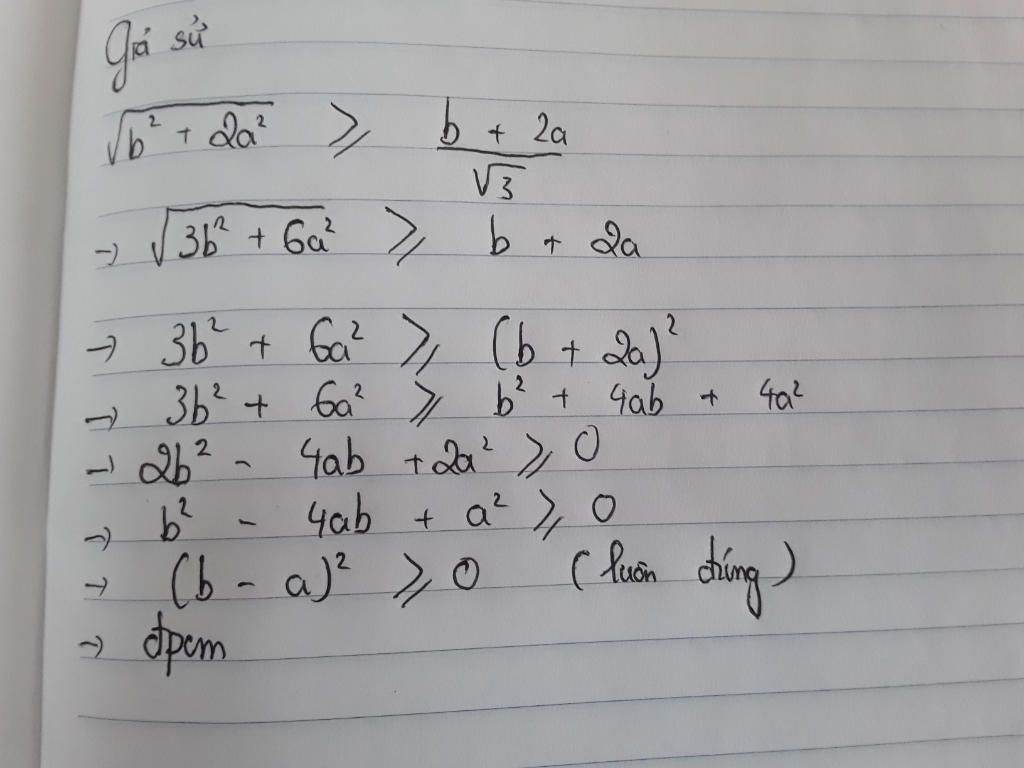 Giả sử
√(b² + 2a²) ≥ (b + 2a)/√3
→ √(3b² + 6a²) ≥ b + 2a
→ 3b² + 6a² ≥ (b + 2a)²
→ 3b² + 6a² ≥ b² + 4ab + 4a²
→ 2b² - 4ab + 2a² ≥ 0
→ b² - 4ab + a² ≥ 0
→ (b - a)² ≥ 0 (luôn đúng)
→ đpcm